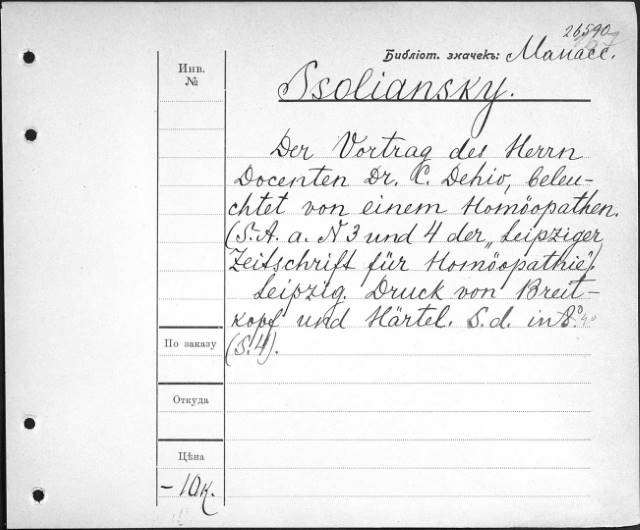 26590
Библіот. значекъ: Манасс.
Инв.
№
Psoliansky.
Der Vortrag des Herrn
Docenten Dr. C. Dehio, beleu-
chtet von einem Homöopathen.
(S. A. a. N 3 und 4 der „Leipziger
Zeitschrift für Homöopathie“.
Leipzig. Druck von Breit-
kopf und Härtel. S. d. in 8º
(S. 4).
По заказу
Откуда
Цѣна
- 10 к.